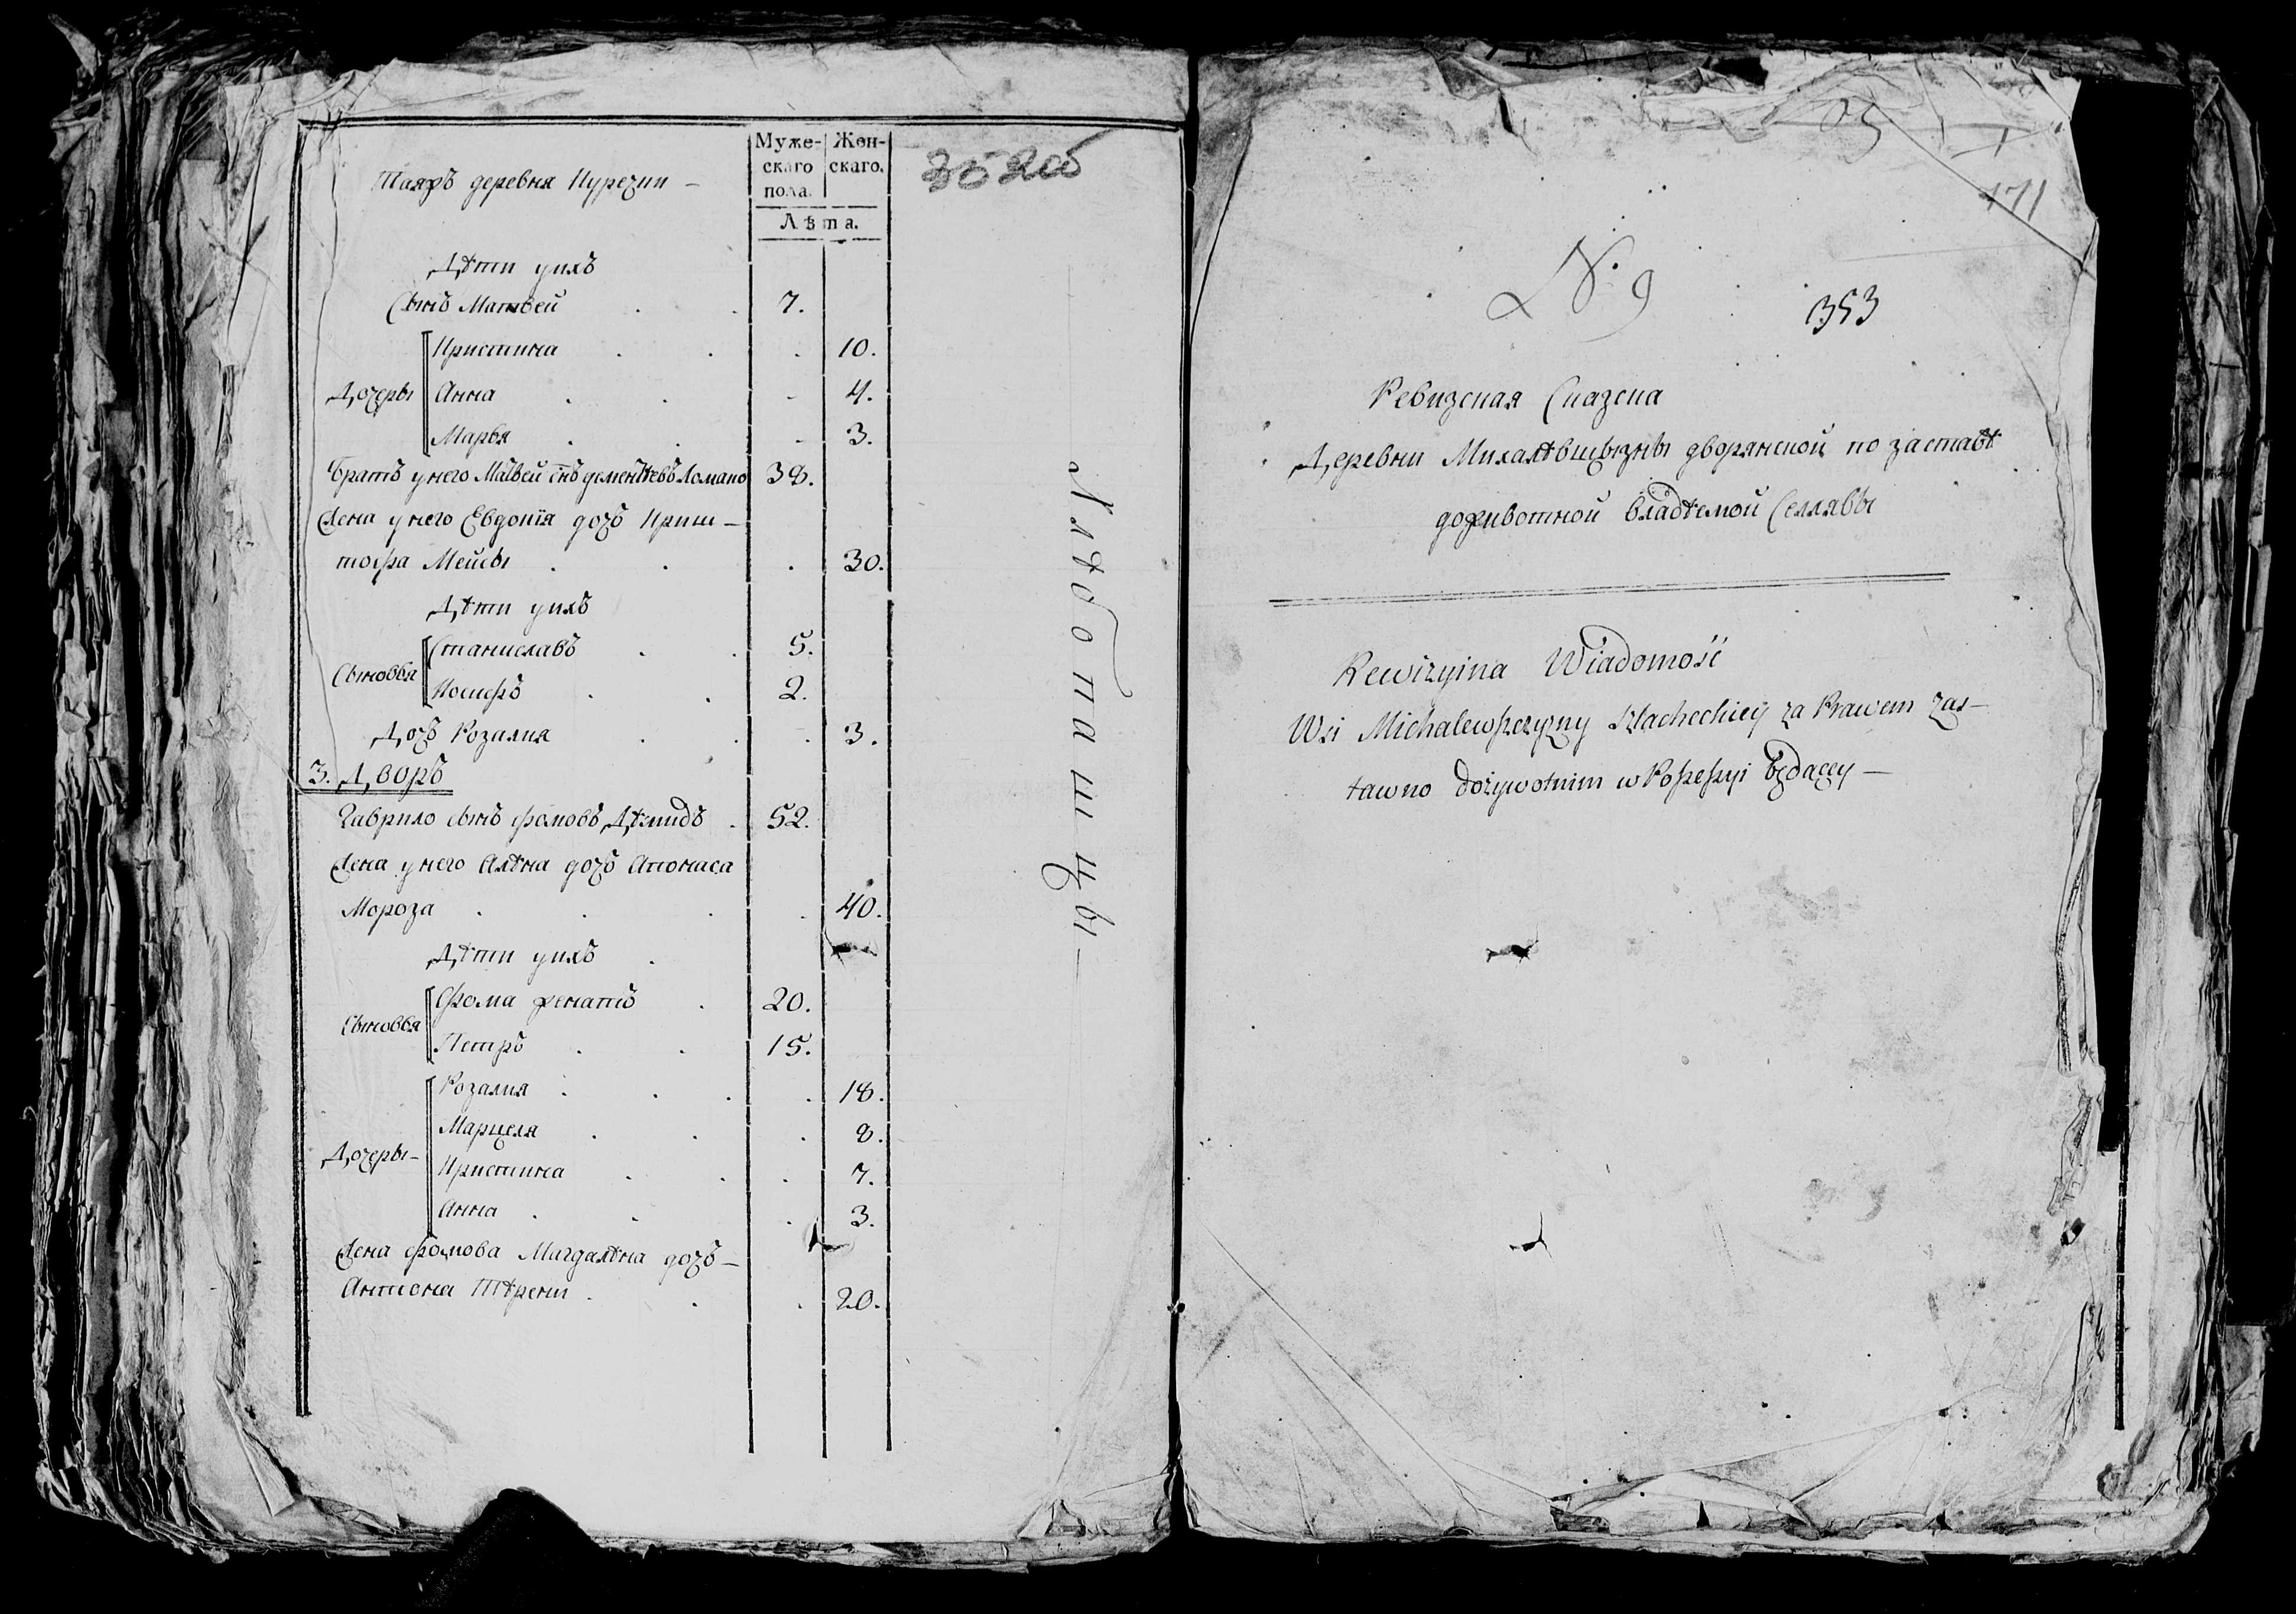 Муже-
скаго
пола.
Жен-
скаго.
Лѣта.
352об
Таяжъ деревня Курезии –
Дѣти унхъ
Сынъ Матвей 7.
Дочеры
Кристина 10.
Анна 4.
Марья 3.
Братъ унего Матвей снъ дементѣевъ Ломано 38.
Жена унего Евдокія дочь Криш-
тофа Мейсы 30.
Дѣти унхъ
Сыновья
Станиславъ 5.
Иосифъ 2.
Дочь Розалия 3.
3. Дворъ
Гаврило сынъ фомовъ Дѣмидъ 52.
Жена унего Алѣна дочь Апонаса
Мороза 40.
Дѣти унхъ
Сыновья
Фома женатъ 20.
Петръ 15.
Дочеры –
Розалия 18.
Марцеля 8.
Кристина 7.
Анна 3.
Жена фомова Магдалѣна дочь –
Антона Тѣрени 20.
171
№ 9
353
Ревизская Сказка
Деревни Михалѣвщызны дворянской по заставѣ
доживотной владѣемой Селлявы
Rewizyina Wiadomość
Wsi Michalewszczyzny Szlacheckiey za Prawem zas–
tawno dożywotnim w Possessyi będącey –